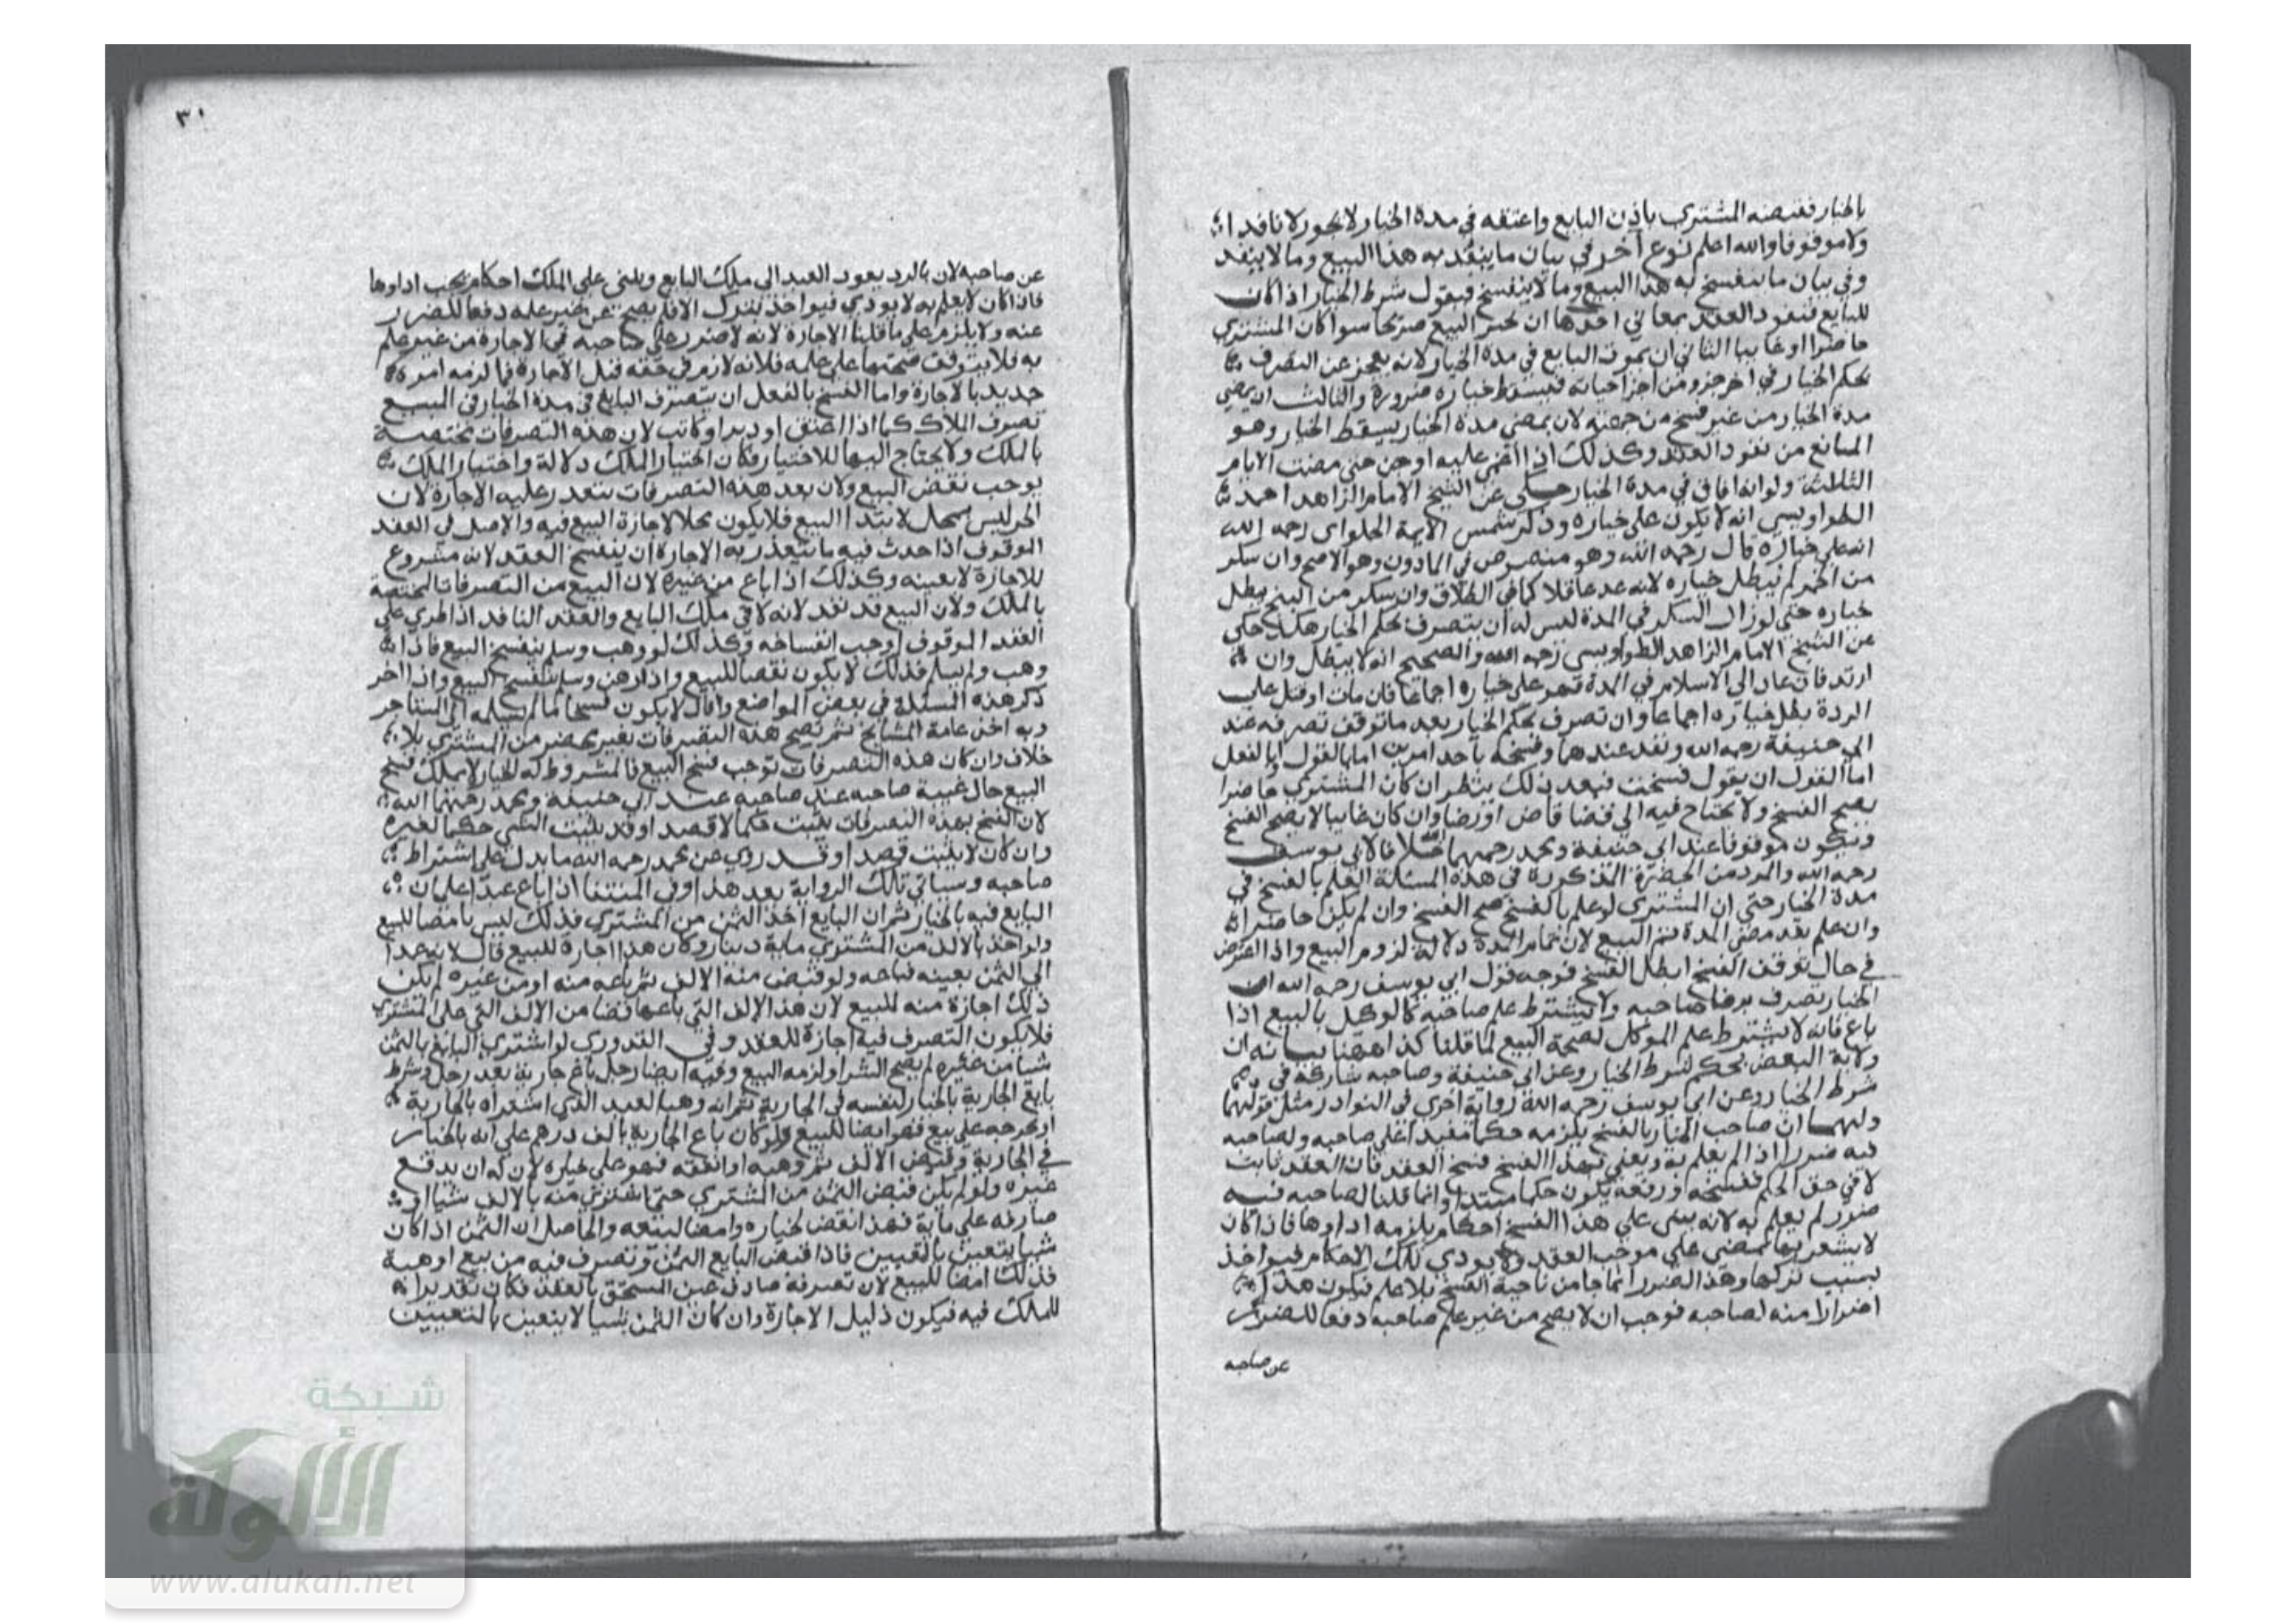 بالخيار فقبضه المشتري باذن البايع واعتقه في مدة الخيار لا يجوز لا نافدا
ولا موقوفا والله اعلم نوع آخر في بيان ما ينفد به هذا البيع وما لا ينفد
وفي بيان ما ينفسخ به هذا البيع وما لا ينفسخ فيقول شرط الخيار اذا كان
للبايع فنفود العقد بمعاني احدها ان يجيز البيع صريحا سوا كان المشتري
حاضرا او غايبا الثاني ان يموت البايع في مدة الخيار لانه يعجز عن التصرف
بحكم الخيار في اخر جزو من اجزا حياته فيسقط خياره ضرورة والثالث ان يمضي
مدة الخيار من غير فسخ من جهته لان بمضي مدة الخيار يسقط الخيار وهو
المانع من نفود العقد وكذلك اذا اغمي عليه او جن حتى مضت الايام
الثلاثة ولو انه افاق في مدة الخيار حكى عن الشيخ الامام الزاهد احمد
الطواويسي انه لا يكون على خياره وذكر شمس الايمة الحلواى رحمه الله
انه على خياره قال رحمه الله وهو منصوص في المادون وهو الاصح وان سكر
من الخمر لم يبطل خياره لانه عد عاقلا كما في الطلاق وان سكر من البنج يبطل
خياره حتى لو زال السكر في المدة ليس له ان يتصرف بحكم الخيار هكذا حكى
عن الشيخ الامام الزاهد الطواويسى رحمه الله والصحيح انه لا يبطل وان
ارتد فان عاد الى الاسلام في المدة فهو على خياره اجماعا فان مات او قتل على
الردة بطل خياره اجماعا وان تصرف بحكم الخيار بعد ما توقف تصرفه عند
ابي حنيفة رحمه الله ونفد عندهما وفسخه باحد امرين اما بالقول او بالفعل
اما القول ان يقول فسخت فبعد ذلك ينظر ان كان المشتري حاضرا
يصح الفسخ ولا يحتاج فيه الى قضا قاض او رضا وان كان غايبا لا يصح الفسخ
ويكون موقوفا عند ابي حنيفة ومحمد رحمهما خلافا لابي يوسف
رحمه الله والمراد من الحضرة المذكورة في هذه المسئلة العلم بالفسخ في
مدة الخيار حتى ان المشتري لو علم بالفسخ صح الفسخ وان لم يكن حاضرا
وان علم بعد مضي المدة تم البيع لان تمام المدة دلالة لزوم البيع واذا
في حال توقف الفسخ ابطل الفسخ فوجه قول ابي يوسف رحمه الله ان
الخيار تصرف برضا صاحبه ولا يشترط علم صاحبه كالوكيل بالبيع اذا
باع فانه لا يشترط علم الموكل لصحة البيع لما قلنا كذا ههنا بيانه ان
ولاية البعض بحكم شرط الخيار وعن ابي حنيفة وصاحبه شاركه في
شرط الخيار وعن ابي يوسف رحمه الله رواية اخرى في النوادر مثل قولهما
ولهما ان صاحب الخيار بالفسخ يلزمه حكما مفيدا على صاحبه ولصاحبه
فيه ضررا اذا لم يعلم به ونعني بهذا الفسخ فسخ العقد فان العقد ثابت
لا في حق الحكم ففسخه ورفعه يكون حكما مبتدا وانما قلنا لصاحبه فيه
ضرر لم يعلم به لانه يبنى على هذا الفسخ احكام يلزمه اداوها فاذا كان
لا يشعر بها يمضي على موجب العقد ولا يودي تلك الاحكام فيواخذ
بسبب تركها وهذا الضرر انما جا من ناحية الفسخ بلا علم فيكون هذا
اضرارا منه لصاحبه فوجب ان لا يصح من غير علم صاحبه دفعا للضرر
عن صاحبه
٣٠
عن صاحبه لان بالرد يعود العبد الى ملك البايع ويبنى على الملك احكام يجب اداوها
فاذا كان لا يعلم به لا يودي فيواخذ بترك الافلم يصح من غير علمه دفعا للضرر
عنه ولا يلزم على ما قلنا الاجازة لانه لا ضرر على صاحبه في الاجازة من غير علم
به فلا يتوقف صحتها على علمه فلانه لازم في حقه قبل الاجازة فما لزمه امر
جديد بالاجازة واما الفسخ بالفعل ان يتصرف البايع في مدة الخيار في المبيع
تصرف الملاك كما اذا اعتق او دبر او كاتب لان هذه التصرفات مختصة
بالملك ولا يحتاج اليها للاختيار فكان اختيار الملك دلالة واختيار الملك
يوجب نقض البيع ولان بعد هذه التصرفات يتعدر عليه الاجازة لان
الحر ليس بمحل لابتدا البيع فلا يكون محلا لاجازة البيع فيه والاصل في العقد
الموقوف اذا حدث فيه ما يتعذر به الاجازة ان ينفسخ العقد لانه مشروع
للاجازة لا بعينه وكذلك اذا باع من غيره لان البيع من التصرفات المختصة
بالملك ولان البيع قد نفد لانه لاقى ملك البايع والعقد النافد اذا طري على
العقد الموقوف اوجب انفساخه وكذلك لو وهب وسلم ينفسخ البيع فاذا
وهب ولم يسلم فذلك لا يكون نقضا للبيع واذا رهن وسلم ينفسخ البيع واذا اجر
ذكر هذه المسئلة في بعض المواضع وقال لا يكون فسخا ما لم يسلمه الى المستاجر
وبه اخذ عامة المشايخ ثم تصح هذه التصرفات بغير محضر من المشتري بلا
خلاف وان كان هذه التصرفات توجب فسخ البيع فالمشروط له الخيار لا يملك فسخ
البيع حال غيبة صاحبه عند صاحبه عند ابي حنيفة ومحمد رحمهما الله
لان الفسخ بهذه التصرفات يثبت حكما لا قصدا وقد يثبت الشي حكما لغيره
وان كان لا يثبت قصدا وقد روي عن محمد رحمه الله ما يدل على اشتراط
صاحبه وسياتي تلك الرواية بعد هذا وفي المنتقا اذا باع عبدا على ان
البايع فيه بالخيار ثم ان البايع اخذ الثمن من المشتري فذلك ليس بامضا للبيع
ولو اخذ بالالف من المشتري ماية دينار وكان هذا اجازة للبيع قال لا يتعدا
الى الثمن بعينه فباعه ولو قبض منه الالف ثم باعه منه او من غيره لم يكن
ذلك اجازة منه للبيع لان هذا الالف التي باعها قضا من الالف التي على المشتري
فلا يكون التصرف فيه اجازة للعقد وفي القدوري لو اشترى البايع بالثمن
شيا من غيره لم يصح الشرا ولزمه البيع وفيه ايضا رجل باع جارية بعبد رجل وشرط
بايع الجارية بالخيار لنفسه في الجارية ثم انه وهب العبد الذي اشتراه بالجارية
او يخرجه على بيع فهو ايضا للبيع ولو كان باع الجارية بالف درهم على انه بالخيار
في الجارية وقبض الالف ثم وهبه او انفقه فهو على خياره لان له ان يدفع
غيره ولو لم يكن قبض الثمن من المشتري حتى اشترى منه بالالف شيا او
صارفه على ماية فهذا نقض لخياره وامضا لبيعه والحاصل ان الثمن اذا كان
شيا يتعين بالتعيين فاذا قبض البايع الثمن وتصرف فيه من بيع او هبة
فذلك امضا للبيع لان تصرفه صادف عين المستحق بالعقد فكان تقديرا
للملك فيه فيكون دليل الاجازة وان كان الثمن شيا لا يتعين بالتعيين
شبكة
الألوكة
www.alukah.net